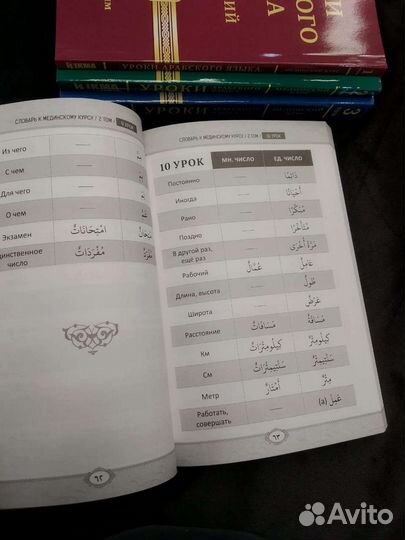 УРОКИ АРАБСКОГО ЯЗЫКА
УРОКИ
УРОКИ
СЛОВАРЬ К МЕДИНСКОМУ КУРСУ / 2 ТОМ / 9 УРОК
Из чего ——
С чем ——
Для чего ——
О чем ——
Экзамен اِمْتِحَانَاتٌ
число مُفْرَدَاتٌ مُفْرَدَةٌ
٦٢
СЛОВАРЬ К МЕДИНСКОМУ КУРСУ / 2 ТОМ / 10 УРОК
10 УРОК МН. ЧИСЛО ЕД. ЧИСЛО
Постоянно —— دَائِمًا
Иногда —— أَحْيَانًا
Рано —— مُبَكِّرًا
Поздно —— مُتَأَخِّرًا
В другой раз, —— مَرَّةً أُخْرَى
ещё раз
Рабочий عُمَّالٌ عَامِلٌ
Длина, высота —— طُولٌ
Широта —— عَرْضٌ
Расстояние مَسَافَاتٌ مَسَافَةٌ
Км كِيلُومِتْرَاتٌ كِيلُومِتْرٌ
См سَنْتِيمِتْرَاتٌ سَنْتِيمِتْرٌ
Метр أَمْتَارٌ مِتْرٌ
Работать, —— عَمِلَ (a)
совершать
٦٣
Avito